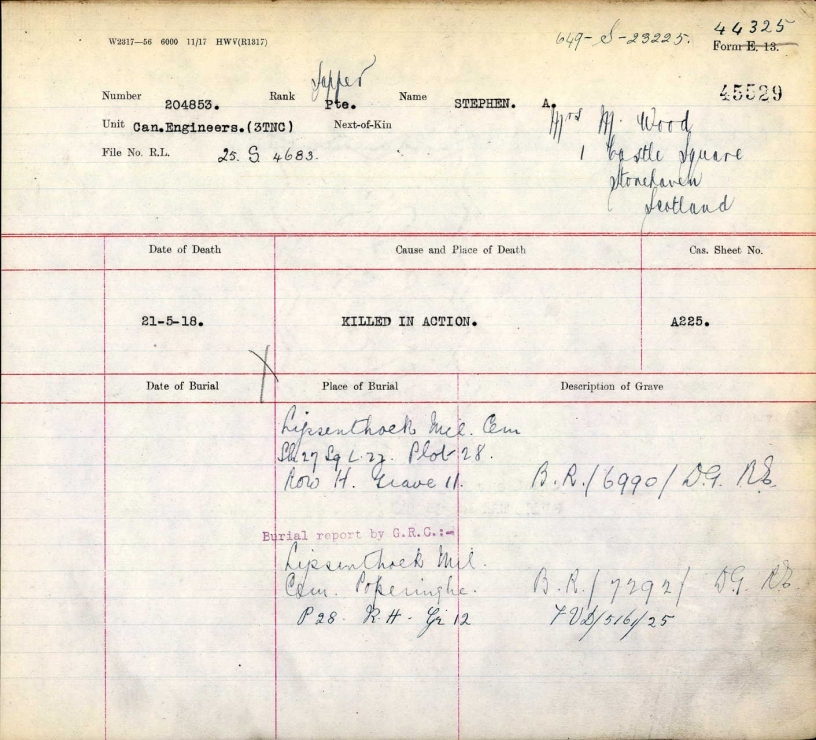 W2317—56 6000 11/17 HWV(R1317)
649-S-23225.
44325
Form E. 13.
45529
Sapper
Number 204853. Rank Pte. Name STEPHEN. A.
Unit Can.Engineers.(3TNC) Next-of-Kin Mrs M. Wood
1 Castle Square
Stonehaven
Scotland
File No. R.L. 25. S. 4683.
Date of Death Cause and Place of Death Cas. Sheet No.
21-5-18. KILLED IN ACTION. A225.
Date of Burial Place of Burial Description of Grave
Lijssenthoek Mil. Cem
Sh.27 Sq L.22. Plot 28.
Row H. Grave 11. B.R./6990/ D.G. R&E.
Burial report by G.R.C.:-
Lijssenthoek Mil.
Cem. Poperinghe. B.R./7292/ D.G. R&E
P28. R.H. Gr 12 FVD/516/25